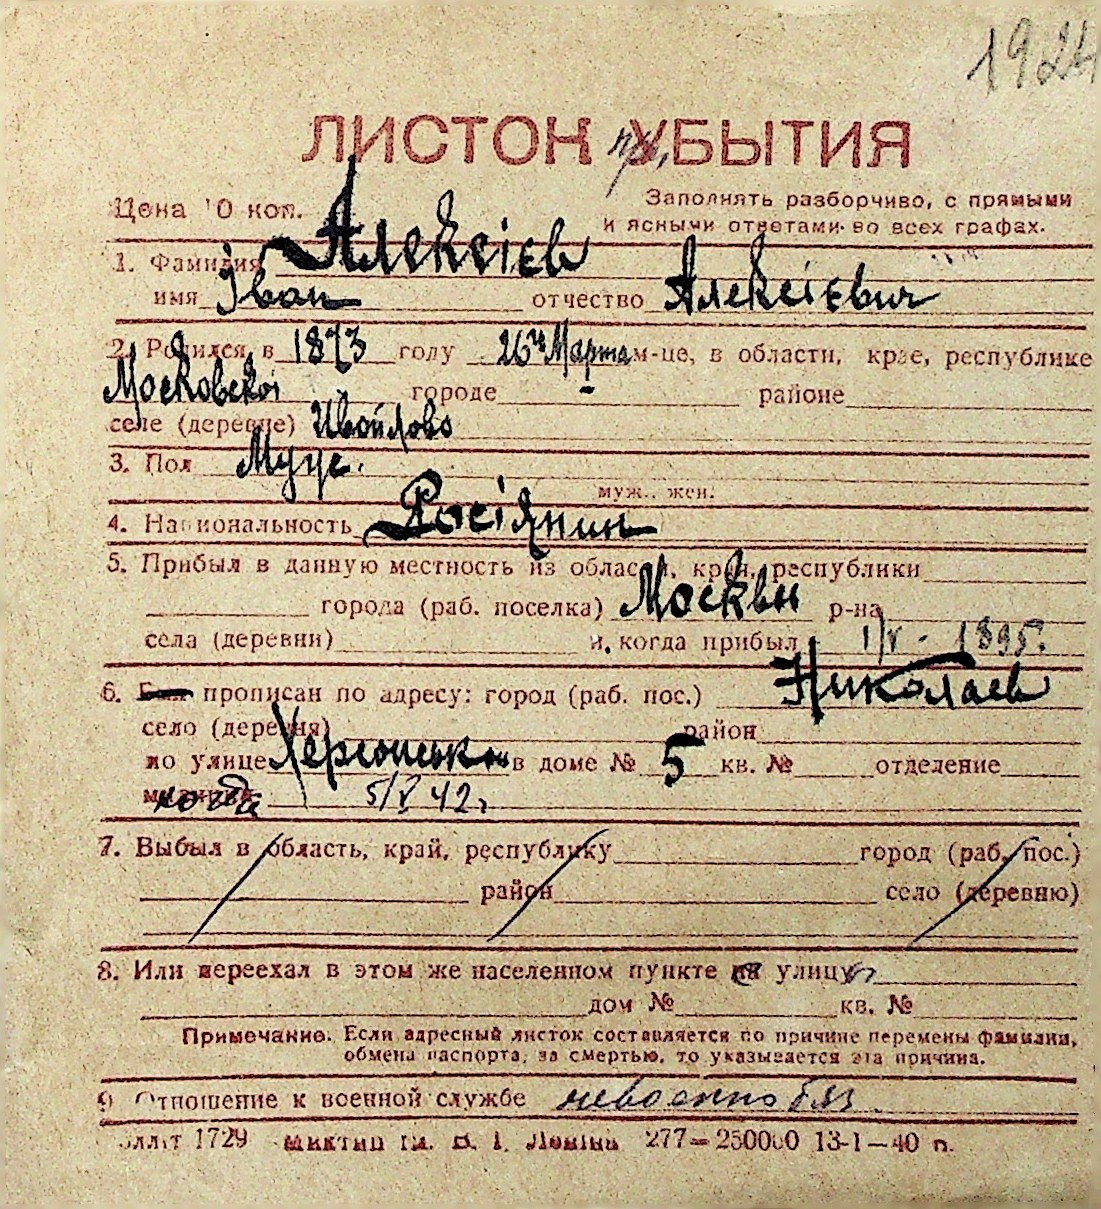 1924
ЛИСТОК при УБЫТИЯ
Цена 10 коп.
Заполнять разборчиво, с прямыми
и ясными ответами во всех графах.
1. Фамилия Алексієв
имя Іван отчество Алексієвич
2. Родился в 1873 году 26го Марта м-це, в области, крае, республике
Московской городе районе
селе (деревне) Ивойлово
3. Пол Муж.
муж., жен.
4. Национальность Росіянин
5. Прибыл в данную местность из области, края, республики
города (раб. поселка) Москвы р-на
села (деревни) и когда прибыл 1/V - 1895.
6. прописан по адресу: город (раб. пос.) Николаев
село (деревня) район
по улице в доме № 5 кв. № отделение
милиции когда 5/V 42 г
7. Выбыл в область, край, республику город (раб. пос.)
район село (деревню)
8. Или переехал в этом же населенном пункте на улицу
дом № кв. №
Примечание. Если адресный листок составляется по причине перемены фамилии,
обмена паспорта, за смертью, то указывается эта причина.
9 Отношение к военной службе невоеннобяз.
1729 ім. В. І. Леніна 277—250000 13-1—40 п.